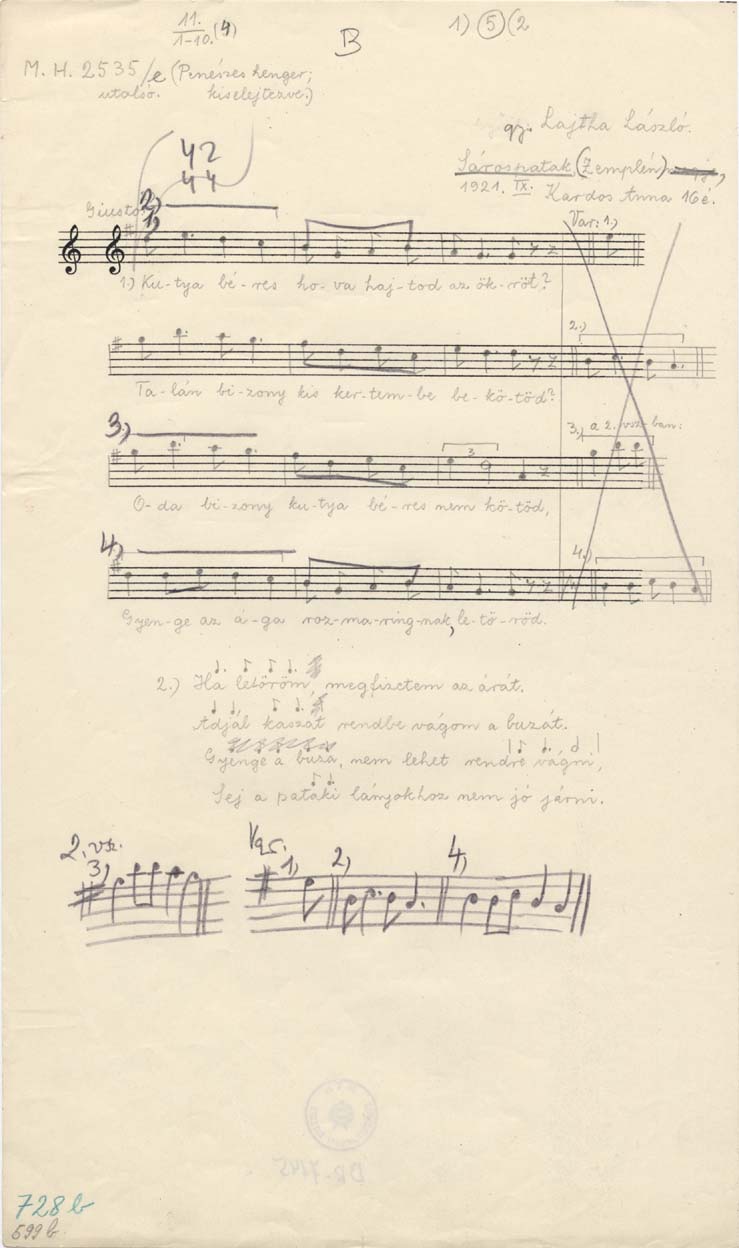 11.
1-10. (4)
B
1) 5 (2
M. H. 2535/e (Penészes henger;
utalsó. kiselejtezve.)
gy. Lajtha László.
42
44
Sárospatak, (Zemplén)
1921. IX. Kardos Anna 16 é.
Giusto
2)
1)
Var: 1.)
1.) Ku-tya bé-res ho-va haj-tod az ök-röt?
2.)
Ta-lán bi-zony kis ker-tem-be be-kö-töd?
3)
3
3.) a 2. vsz-ban:
O-da bi-zony ku-tya bé-res nem kö-töd,
4)
4.)
Gyen-ge az á-ga roz-ma-ring-nak, le-tö-röd.
2.) Ha letöröm, megfizetem az árát.
Adjál kaszát rendbe vágom a buzát.
Gyenge a buza, nem lehet rendre vágni,
Sej a pataki lányokhoz nem jó járni.
2. vsz.
3)
Var.
1)
2)
4)
728b
599b